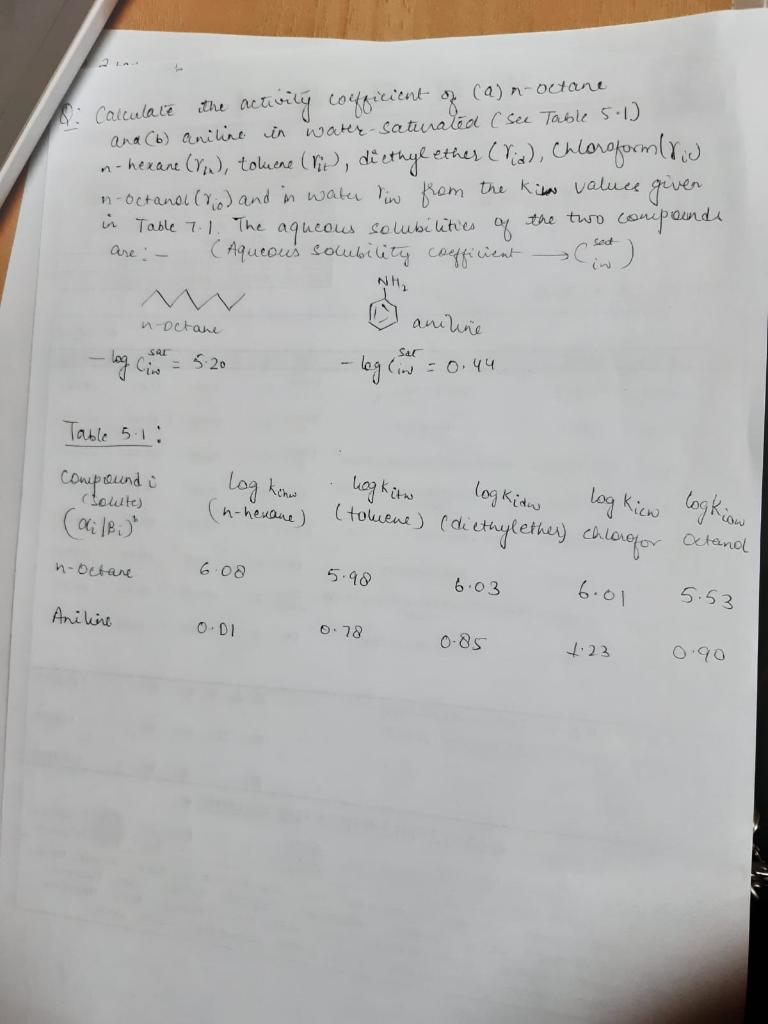 Q: Calculate the activity coefficient of (a) n-octane
and (b) aniline in water-saturated (See Table 5.1)
n-hexane (γih), toluene (γit), diethyl ether (γid), Chloroform (γic)
n-octanol (γio) and in water γiw from the Kiℓw values given
in Table 7.1. The aqueous solubilities of the two compounds
are :- (Aqueous solubility coefficient → C sat iw)
NH2
n-octane
aniline
- log C sat iw = 5.20
- log C sat iw = 0.44
Table 5.1 :
Compound i (solutes) (αi/βi)
log Kihw (n-hexane)
log Kitw (toluene)
log Kidw (diethylether)
log Kicw chlorofor
log Kiow Octanol
n-octane 6.08 5.98 6.03 6.01 5.53
Aniline 0.01 0.78 0.85 1.23 0.90